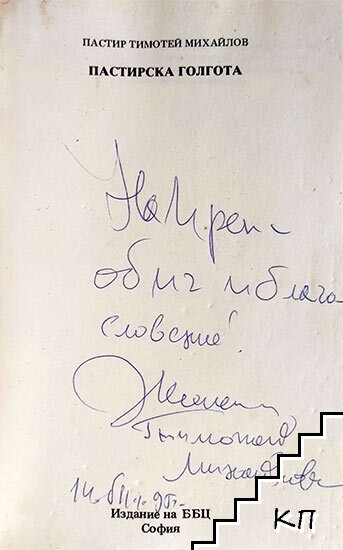 ПАСТИР ТИМОТЕЙ МИХАЙЛОВ
ПАСТИРСКА ГОЛГОТА
На
обич и благо
словение!
Тимотей
Михайлов
Издание на ББЦ
София
КП